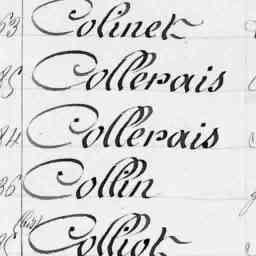 53 Colinet
85 Collerais
84 Collerais
86 Collin
85 (bis) Colliot